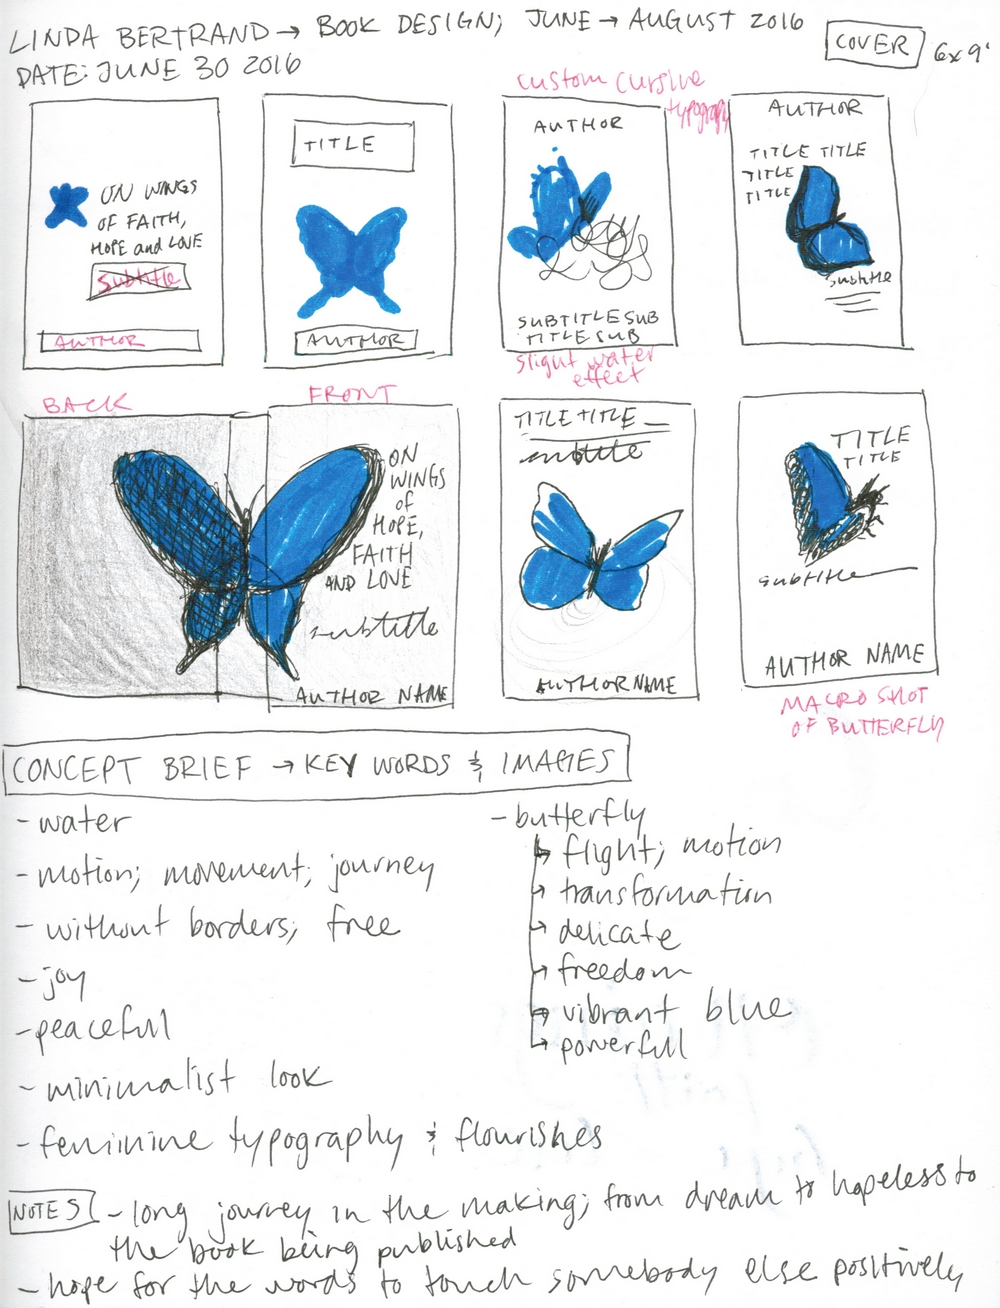 LINDA BERTRAND → BOOK DESIGN; JUNE → AUGUST 2016
COVER 6x9'
DATE: JUNE 30 2016
ON WINGS
OF FAITH,
HOPE and LOVE
subtitle
AUTHOR
TITLE
AUTHOR
custom cursive
typography
AUTHOR
SUBTITLE SUB
TITLE SUB
slight water
effect
AUTHOR
TITLE TITLE
TITLE
TITLE
subtitle
BACK
FRONT
ON
WINGS
of
HOPE,
FAITH
AND LOVE
subtitle
AUTHOR NAME
TITLE TITLE
subtitle
AUTHOR NAME
TITLE
TITLE
subtitle
AUTHOR NAME
MACRO SHOT
OF BUTTERFLY
CONCEPT BRIEF → KEY WORDS & IMAGES
- water
- motion; movement; journey
- without borders; free
- joy
- peaceful
- minimalist look
- feminine typography & flourishes
- butterfly
→ flight; motion
→ transformation
→ delicate
→ freedom
→ vibrant blue
→ powerfull
NOTES - long journey in the making; from dream to hopeless to
the book being published
- hope for the words to touch somebody else positively